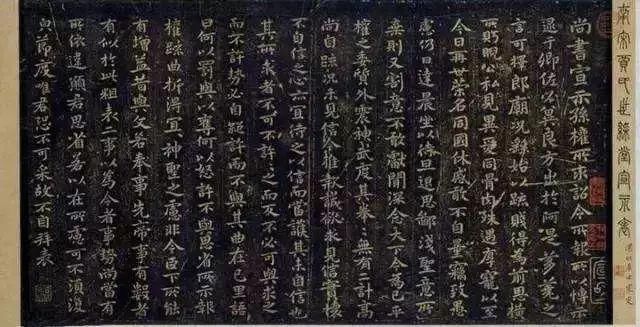 南宋賈氏世綵堂宣示表
尚書宣示孫權所求詔令所報所以博示
逮于卿佐必冀良方出於阿是芻蕘之
言可擇郎廟況繇始以疏賤得為前恩橫
所盱睨公私見異愛同骨肉殊遇厚寵以至
今日再世榮名同國休慼敢不自量竊致愚
慮仍日達晨坐以待旦退思鄙淺聖意所
棄則又割意不敢獻聞深念天下今為已平
權之委質外震神武度其拳拳無有二計高
尚自疏況未見信今推款誠欲求見信實懷
不自信之心亦宜待之以信而當護其未自信也
其所求者不可不許許之而反不必可與求之
而不許勢必自絕許而不與其曲在己里語
曰何以罰與以奪何以怒許不與思省所示報
權疏曲折得宜宜神聖之慮非今臣下所能
有增益昔與文若奉事先帝事有數者
有似於此粗表二事以為今者事勢尚當有
所依違願君思省若以在所慮可不須復
皃節度唯君恐不可采故不自拜表